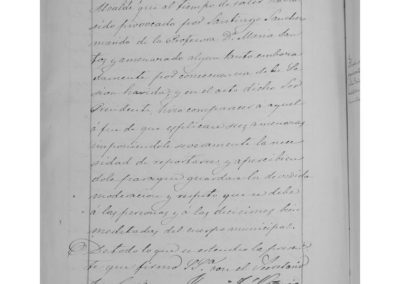 Alcalde que al tiempo de
sido provocado por Santiago Sanchez
marido de la Profesora Dª Maria San-
tos y amenazado algun tanto embara-
damente por consecuencia de la Se-
sion havida; y en el acto dicho Sor
Presidente, hizo comparecer a aquel
á fin de que esplicase sus amenazas
imponiendole severamente la nece-
sidad de reportarse y apercibien
dole para que guardara la devida
moderacion y respeto que se debe
á las personas y á las decisiones bien
meditadas del cuerpo municipal.
De todo lo que se estendio la presen-
te que firmó S. Sª con el Secretario